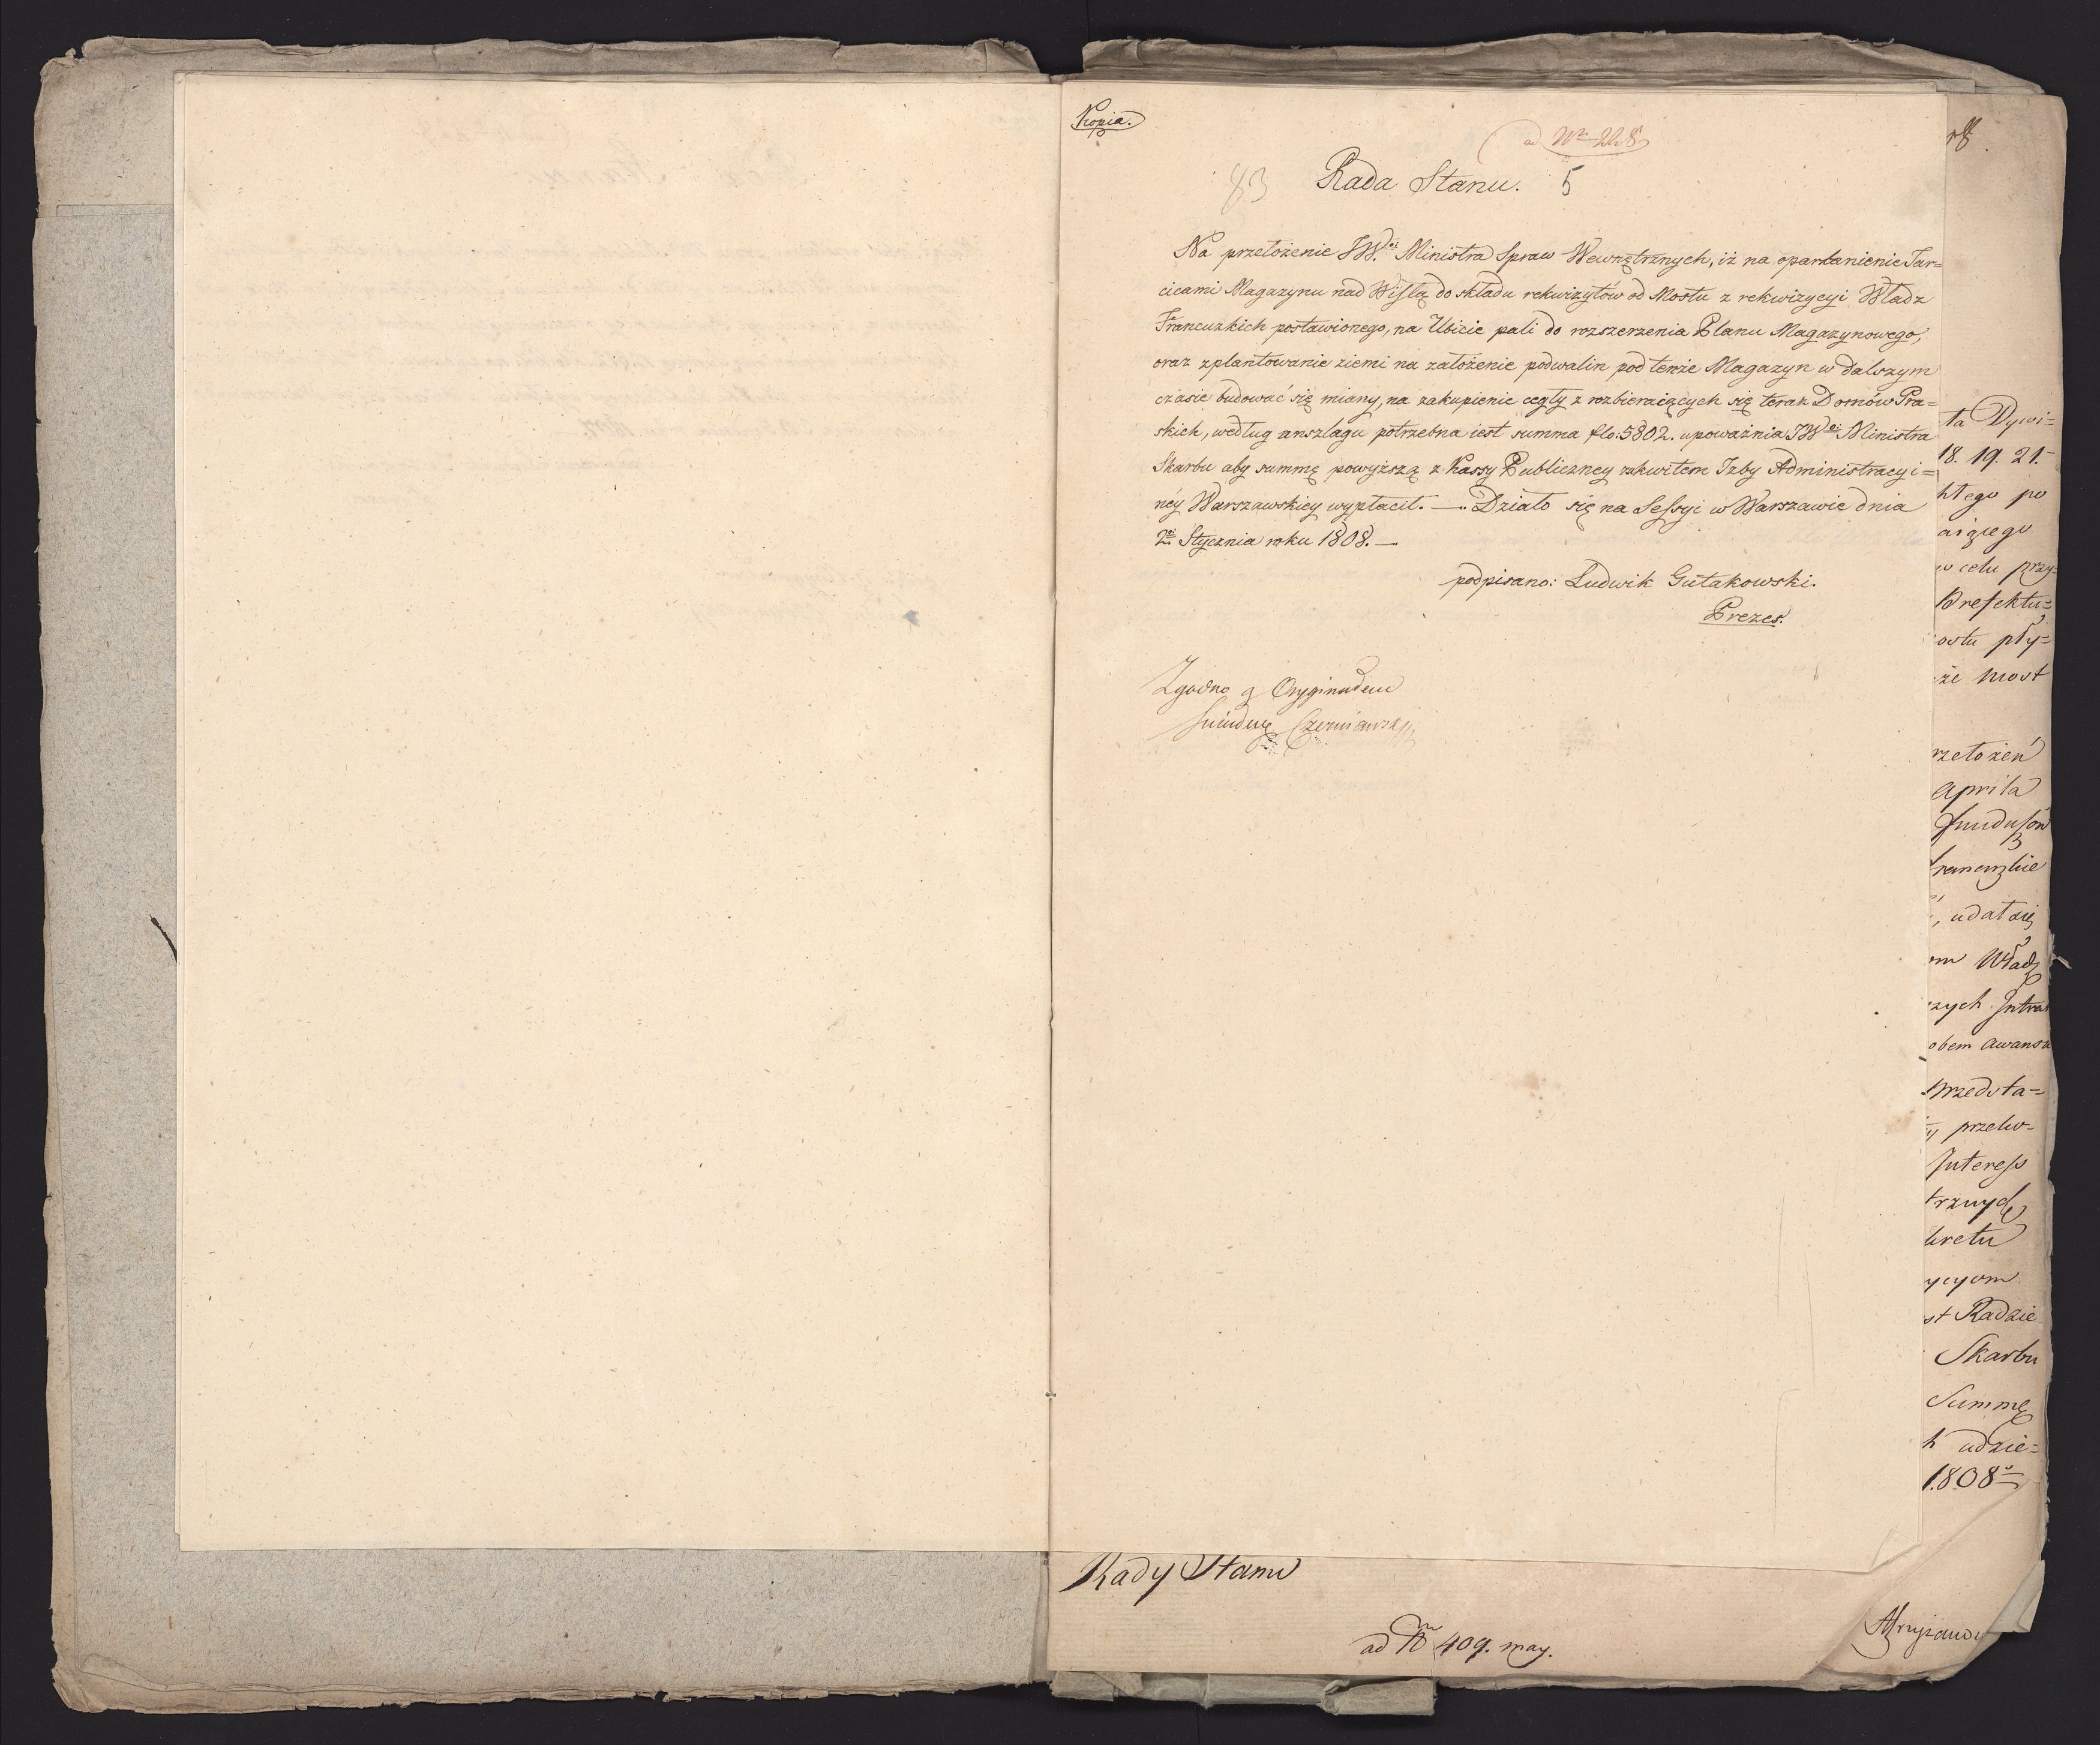 Kopia.
ad Nr 228
83 Rada Stanu. 5
Na przełożenie JWei Ministra Spraw Wewnętrznych, iż na oparkanienie Tar=
cicami Magazynu nad Wisłą do składu rekwizytów od Mostu z rekwizycyi Władz
Francuzkich postawionego, na Ubicie pali do rozszerzenia Planu Magazynowego,
oraz zplantowanie ziemi na założenie podwalin pod tenże Magazyn w dalszym
czasie budować się miany, na zakupienie cegły z rozbieraiących się teraz Domów Pra=
skich, według anszlagu potrzebna iest summa flo: 5802. upoważnia JWei Ministra
Skarbu aby summę powyższą z Kassy Publiczney za kwitem Izby Administracyi=
ney Warszawskiey wypłacił. —. Działo się na Sessyi w Warszawie dnia
2ei Stycznia roku 1808. —
podpisano: Ludwik Gutakowski.
Prezes.
Zgodno z Oryginałem
Czerniawski
ta Dywi=
18. 19. 21.
htego po
aiącego
w celu przy=
Prefektu=
ostu pły=
że most
rzełożeń
Aprila
funduszów
francuzkie
, udał się
om Władz
zych Intra
obem awansu
przedsta=
y przeło=
Interess
trznych
kretu
ycyom
st Radzie
Skarbu
Summę
h udzie=
1808
Rady Stanu
ad Nr 409. may.